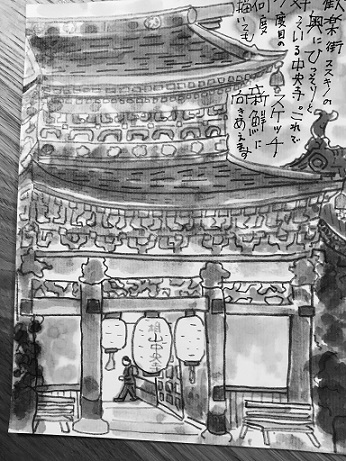 歓楽街ススキノの
奥にひっそりと
っている中央寺。これで
度目の
スケッチ
何度
描いても
新鮮に
向きあえます
山中央寺